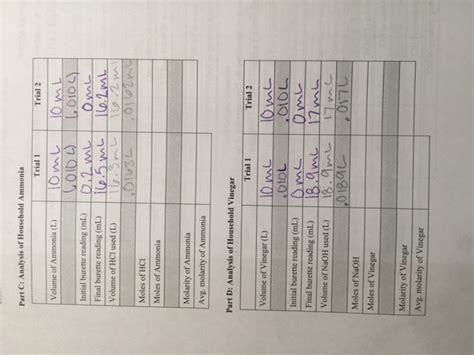 Part C: Analysis of Household Ammonia
Trial 1 Trial 2
Volume of Ammonia (L) 10mL 10mL
(.010L) (.010L)
Initial burette reading (mL) 0.2mL 0mL
Final burette reading (mL) 16.5mL 16.2mL
Volume of HCl used (L) 16.3mL 16.2ml
.0163L .0162ml
Moles of HCl
Moles of Ammonia
Molarity of Ammonia
Avg. molarity of Ammonia
Part D: Analysis of Household Vinegar
Trial 1 Trial 2
Volume of Vinegar (L) 10mL 10mL
.010L .010L
Initial burette reading (mL) 0mL 0mL
Final burette reading (mL) 18.9mL 17mL
Volume of NaOH used (L) 18.9mL 17mL
.0189L .017L
Moles of NaOH
Moles of Vinegar
Molarity of Vinegar
Avg. molarity of Vinegar